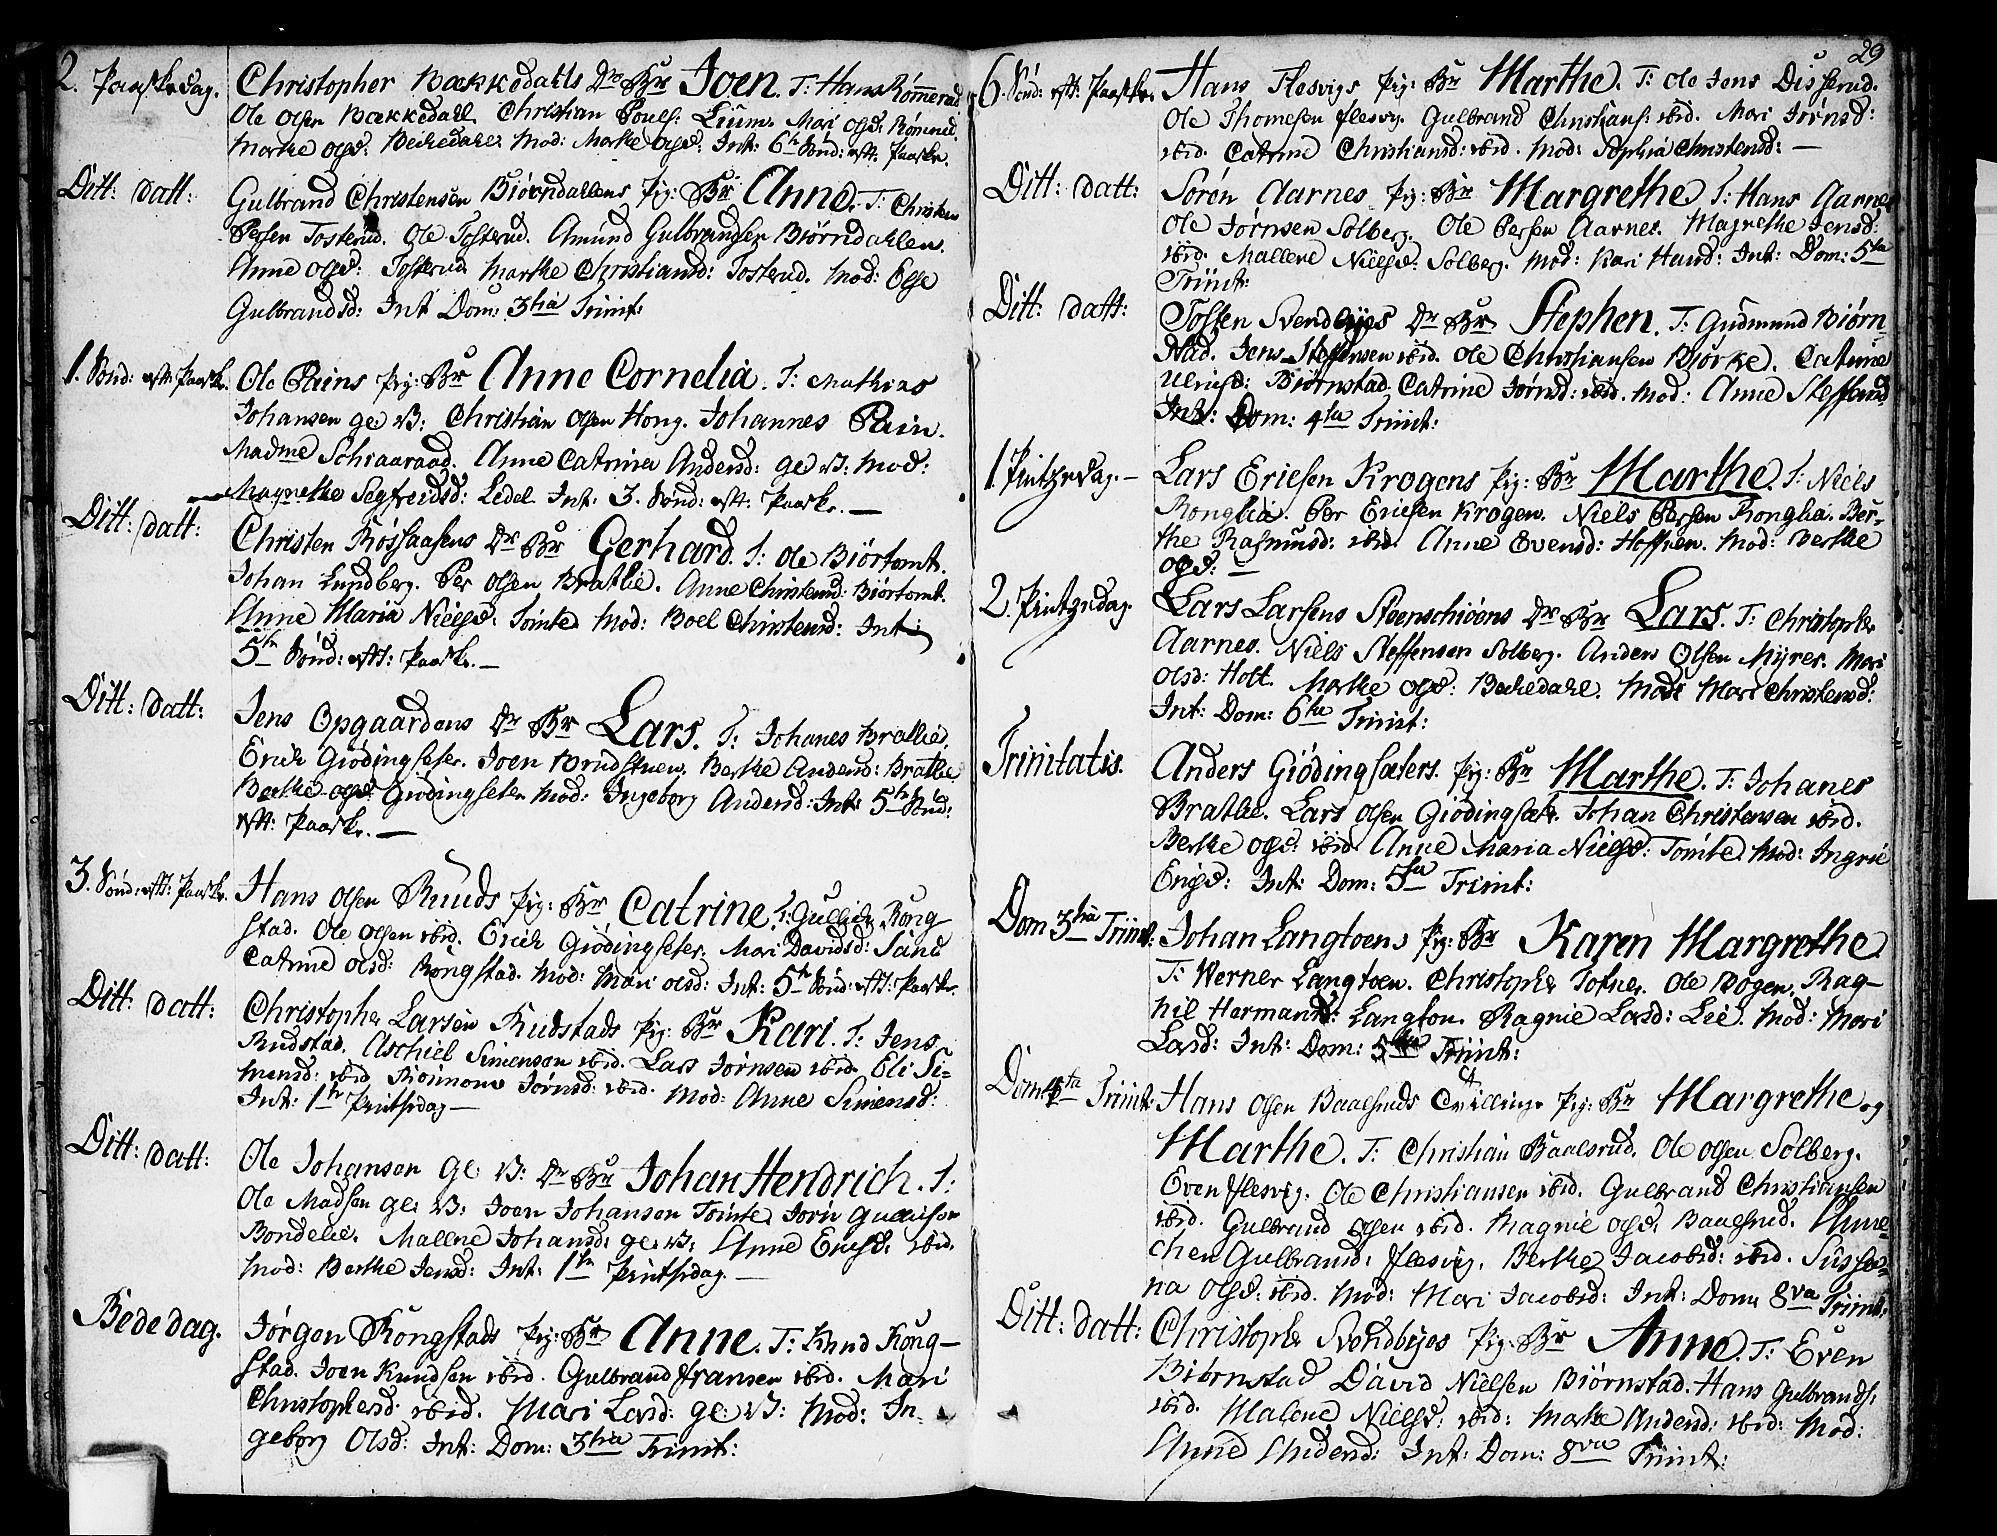 2. Paaskedag. Christopher Bækkedahls Dr. Br: Joen. T: Hans Rømmerud
Ole Olsen Bækkedahl. Christian Pouls: Liium. Mari Olsd: Rømmerud
Marthe Olsd: Beckedahl: Mod: Marthe Olsd: Int: 6te Sønd: eft: Paaske.
Ditt: Datt: Gulbrand Christensen Biørndallens pig: Br: Anne. T: Christen
Persen Tosterud. Ole Tosterud. Amund Gulbrandsen Biørndahlen.
Anne Olsd: Tosterud. Marthe Christiansd: Tosterud. Mod: Else
Gulbrandsd: Int Dom: 3tia Trinit:
1. Sønd: eft: Paaske. Ole Pains pig: Br Anne Cornelia. T: Mathias
Johansen ge: V: Christian Olsen Hong. Johannes Pain.
Madme Schiaaraad. Anne Catrina Andersd: ge: V: Mod:
Magnethe Segfreidsd: Ledel Int: 3. Sønd: eft: Paaske. —
Ditt: Datt: Christen Røssaasens Dr Br Gerhard. T: Ole Biørtomt.
Johan Lundberg. Per Olsen Bratlie. Anne Christensd: Biørtomt.
Anne Maria Nielsd: Tomte Mod: Boel Christensd: Int:
5te Sønd: eft: Paaske. —
Ditt: Datt: Jens Opgaardens Dr Br Lars. T: Johanes Bratlie.
Erich Giødingseter. Joen Brudstuen. Berthe Andersd: Bratlie
Berthe Olsd: Giødingseter Mod: Ingeborg Andersd: Int: 5te Sønd:
eft: Paaske. —
3. Sønd: eft: Paaske. Hans Olsen Ruuds pig: Br Catrine. T: Gullich Rong-
stad. Ole Olsen ibid. Erich Giødingseter. Mari Davidsd: Sand
Catrine Olsd: Rongstad. Mod: Mari Olsd: Int: 5te Sønd: eft: Paaske.
Ditt: Datt: Christopher Larsen Rudstads pig: Br Kari. T: Jens
Rudstad. Aschiel Simensen ibid. Lars Jørnsen ibid. Eli Si-
mensd: ibid Jørnsd: ibid. Mod: Anne Simensd:
Int: 1te Pintsedag —
Ditt: Datt: Ole Johansen Ge: V: Dr Br Johan Hendrich. T:
Ole Madsen ge: V: Joen Johansen Tomte. Jørn Gudichsen
Bondelie. Mallene Johansd: ge: V: Anne Erichsd: ibid.
Mod: Berthe Jensd: Int: 1te Pintsedag. —
Bededag. Jørgen Rongstads pig: Br Anne. T: Knud Rong-
stad. Joen Knudsen ibid. Gulbrand fransen ibid. Mari
Christophersd: ibid. Mari Larsd: ge: V: Mod: In-
geborg Olsd: Int: Dom: 3tia Trinit:
29
6. Sønd: eft: Paaske. Hans Flesvigs pig: Br Marthe. T: Ole Jens Disserud.
Ole Thomesen flesvig. Gulbrand Christians: ibid. Mari Jørnsd:
ibid. Catrine Christiansd: ibid. Mod: Sophia Christensd: —
Ditt: Datt: Søren Aarnes pig: Br Margrethe. T: Hans Aarnes
Ole Jørnsen Solberg. Ole Persen Aarnes. Magrethe Jensd:
ibid. Mallene Nielsd: Solberg. Mod: Kari Hansd: Int: Dom: 5ta
Trinit:
Ditt: Datt: Tosten Svendbyes Dr Br Stephen. T: Gudmund Biørn-
stad. Jens Steffensen ibid. Ole Christiansen Biørke. Catrine
Ulrichsd: Biørnstad. Catrine Jørnsd: ibid. Mod: Anne Steffensd
Int: Dom: 4ta Trinit:
1 Pintzedag. — Lars Ericsen Krogens pig: Br Marthe. T: Niels
Ronglia. Per Ericsen Krogen. Niels Persen Ronglia. Ber-
the Rasmusd: ibid. Anne Evensd: Hoffren. Mod: Berthe
Olsd: —
2. Pintzedag. Lars Larsens Steenschiøens Dr Br Lars. T: Christopher
Aarnes. Niels Steffensen Solberg. Anders Olsen Myrer. Mari
Olsd: Holt. Marthe Olsd: Beckedahl. Mod: Mari Christensd:
Int: Dom: 6ta Trinit:
Trinitatis. Anders Giødingsæters. pig: Br Marthe. T: Johanes
Bratlie. Lars Olsen Giødingsæter. Johan Christensen ibid.
Berthe Olsd: ibid. Anne Maria Nielsd: Tomte. Mod: Ingrie
Engsd: Int: Dom: 5ta Trinit:
Dom 3tia Trinit: Johan Langtoens pig: Br Karen Margrethe
T: Werner Langtoen. Christopher Tofner. Ole Bogen. Rag-
nil Hermansd: Langton. Ragnie Larsd: Lie. Mod: Mari
Larsd: Int: Dom: 5ta Trinit:
Dom 4ta Trinit: Hans Olsen Baalsruds Tvillinge pig: Br Margrethe og
Marthe. T: Christian Baalsrud. Ole Olsen Solberg.
Even flesvig. Ole Christiansen ibid. Gulbrand Christiansen
ibid. Gulbrand Olsen ibid. Magnie Olsd: Baalsrud. Anne-
chen Gulbrandsd: flesvig. Berthe Jacobsd: ibid. Susan-
na Olsd: ibid. Mod: Mari Jacobsd: Int: Dom: 8va Trinit:
Ditt: Datt: Christopher Svendbyes pig: Br Anne. T: Even
Biørnstad David Nielsen Biørnstad. Hans Gulbrands:
ibid. Malene Nielsd: ibid: Marthe Andersd: ibid: Mod:
Anne Andersd: Int: Dom: 8va Trinit: